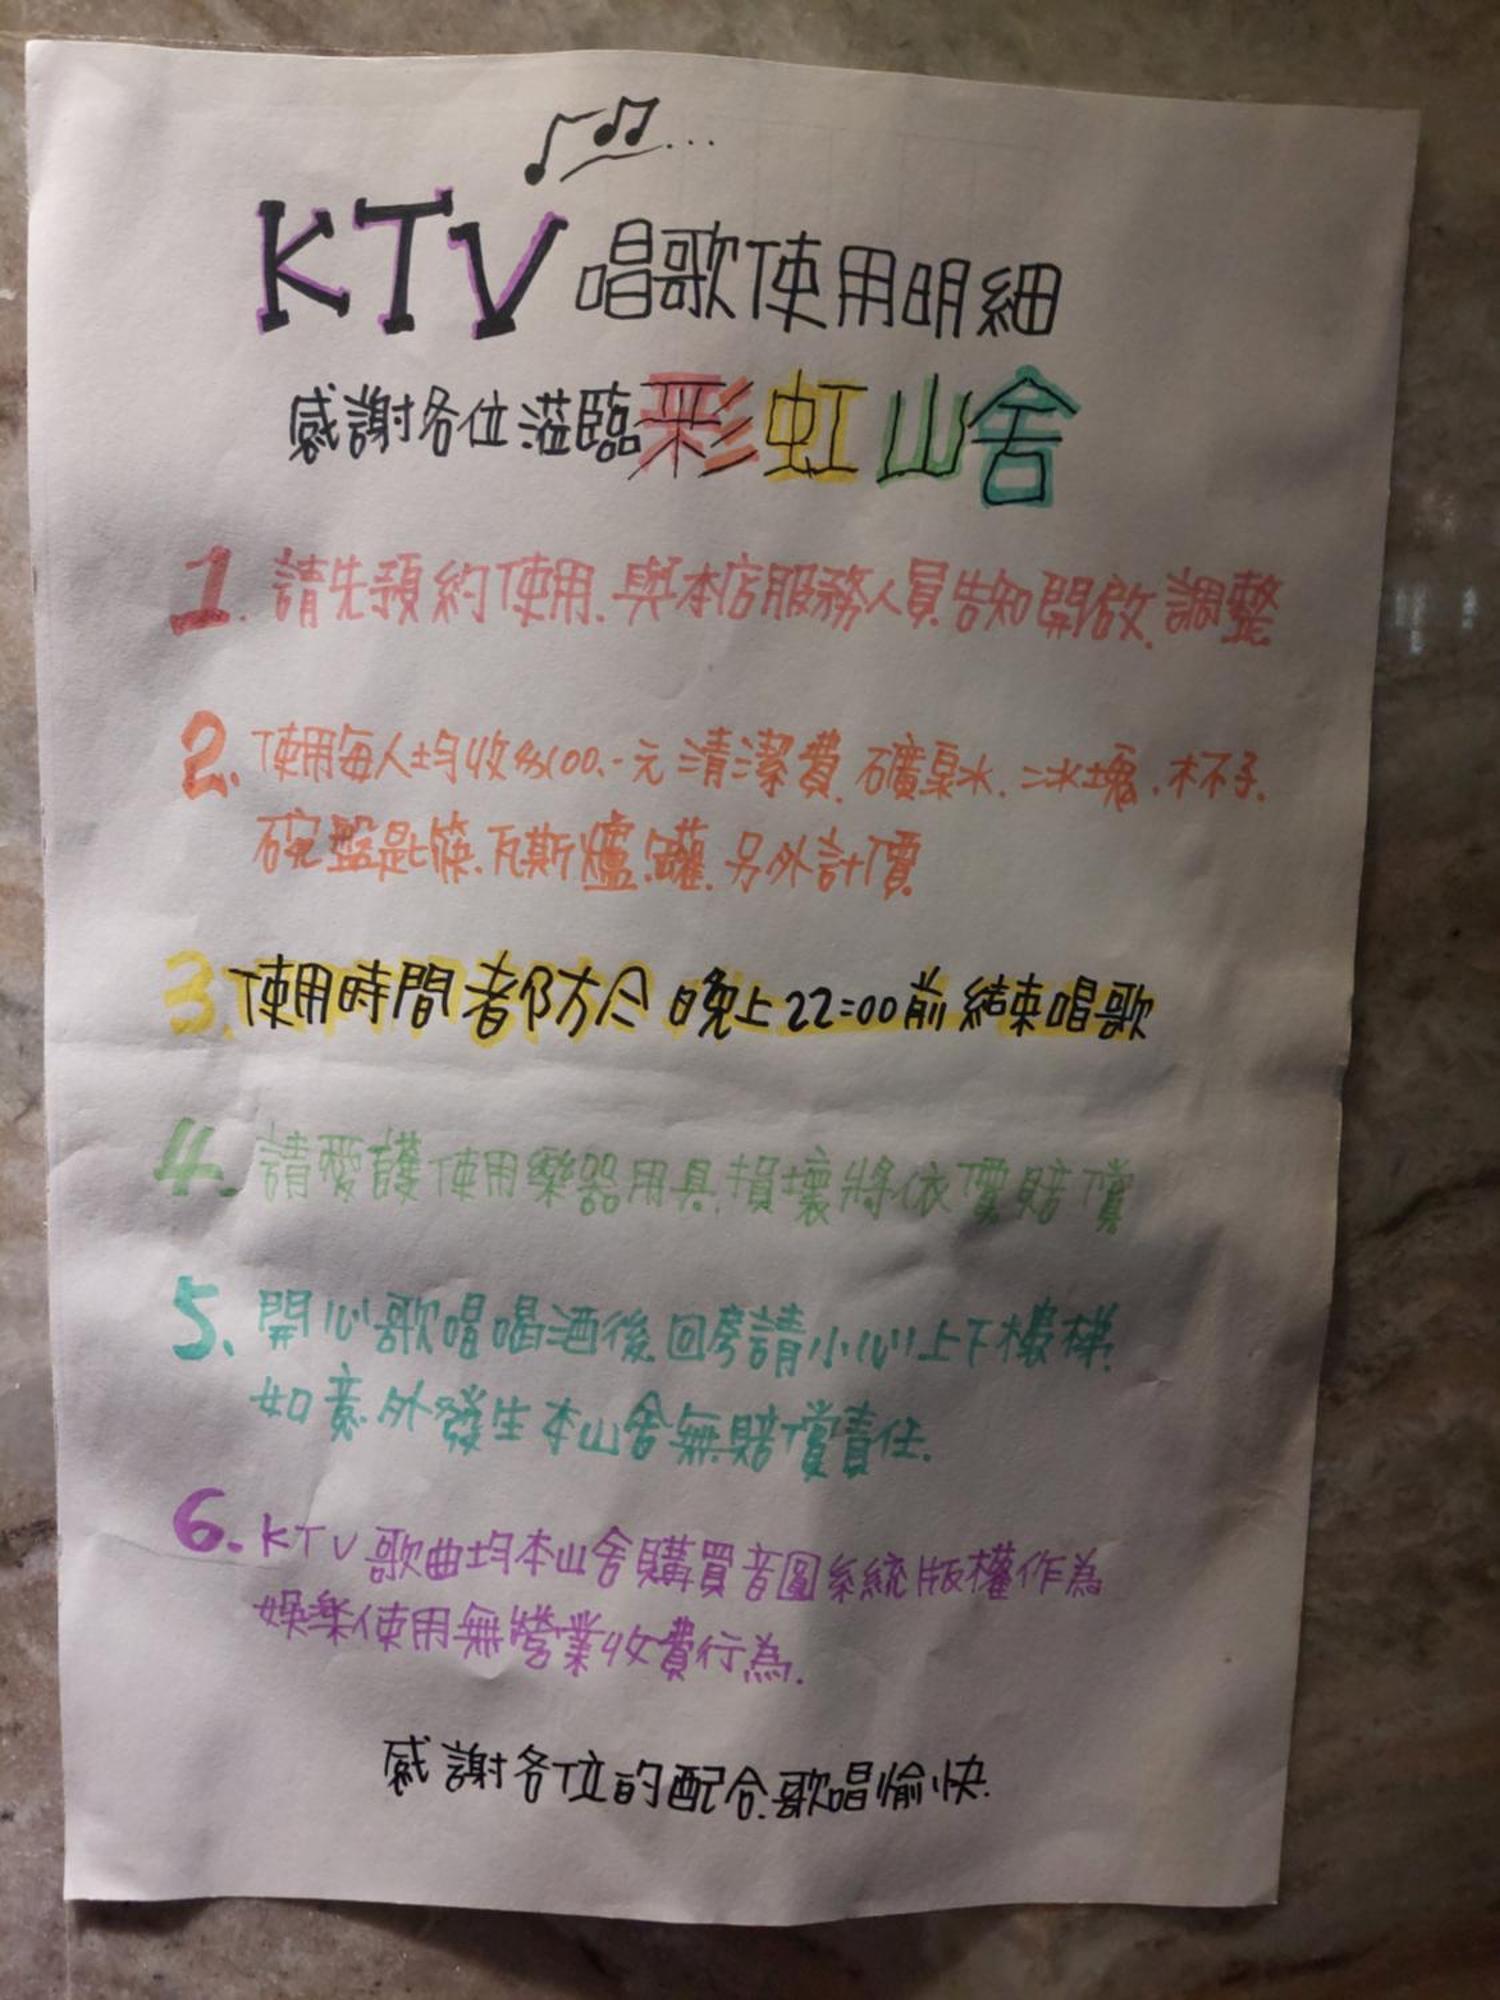 KTV 唱歌使用明細
感謝各位蒞臨彩虹山舍
1. 請先預約使用.與本店服務人員告知開啟.調整
2. 使用每人均收$100.-元清潔費.礦泉水.冰塊.杯子.
碗盤匙筷.瓦斯爐.罐.另外計價
3. 使用時間都於今晚上22:00前結束唱歌
4. 請愛護使用樂器用具.損壞將依價賠償
5. 開心歌唱喝酒後.回房請小心上下樓梯.
如意外發生本山舍無賠償責任.
6. KTV歌曲均本山舍購買音圓系統版權作為
娛樂使用無營業收費行為.
感謝各位的配合.歌唱愉快.